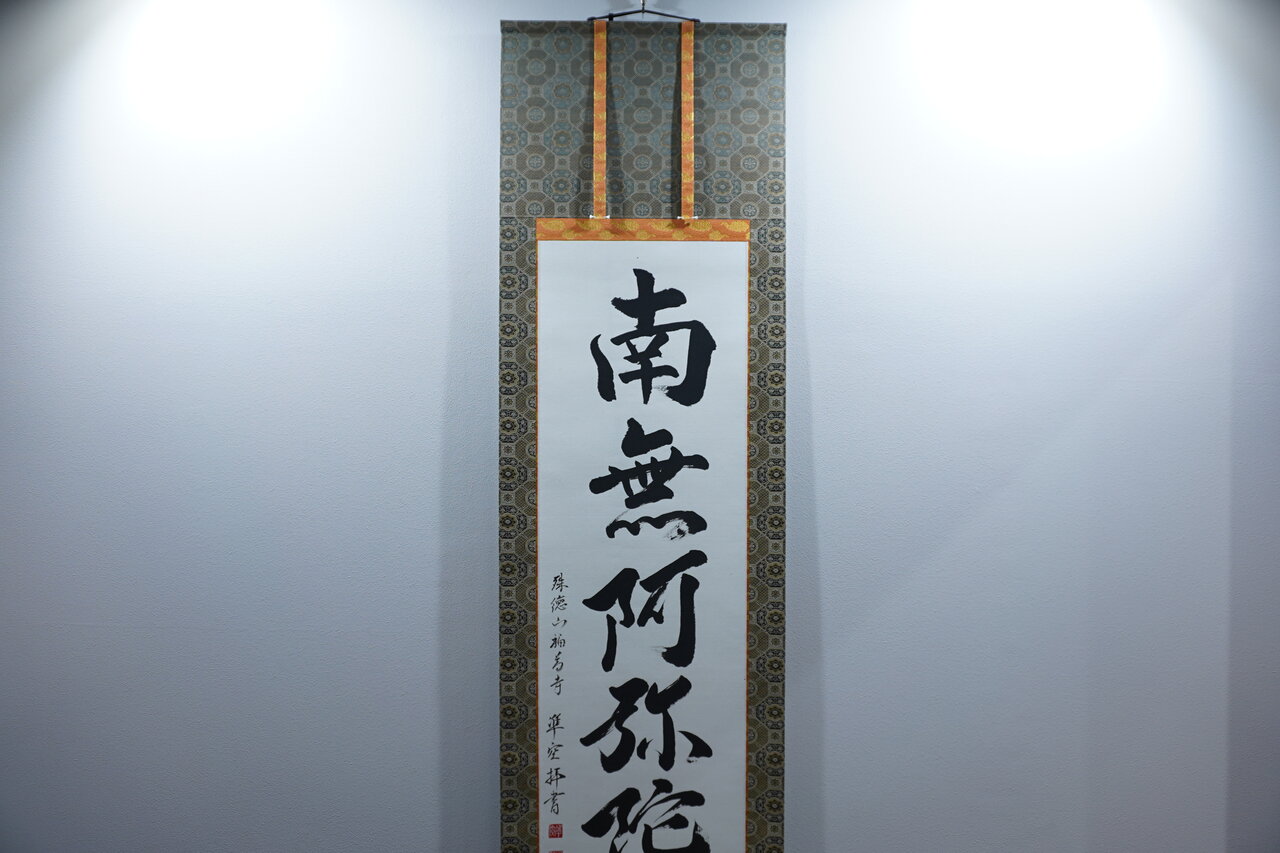 南無阿弥陀
殊徳山栴香寺 準空拝書